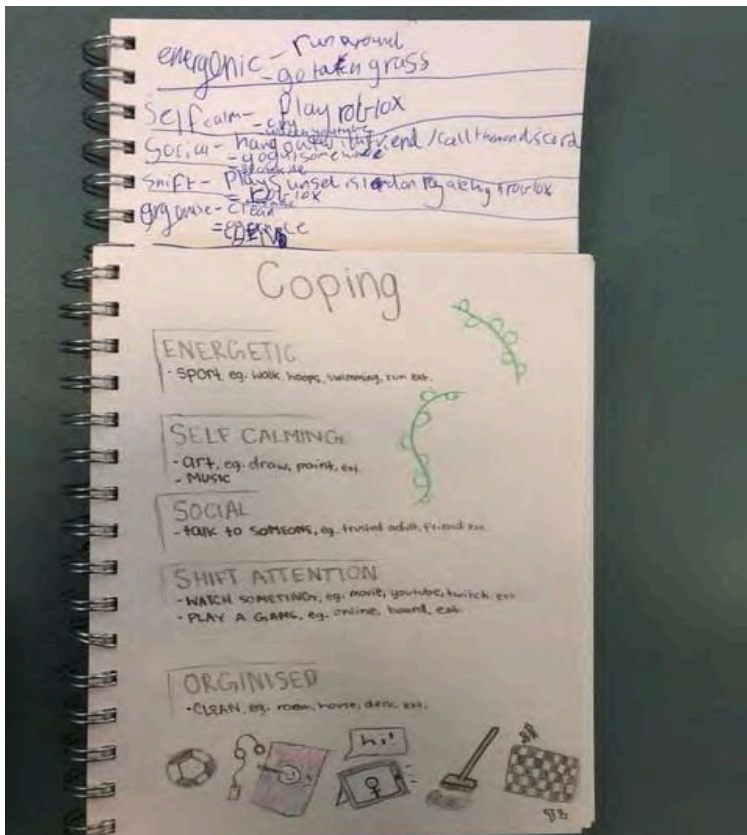 energenic - run around
- go on grass
Self calm - Play roblox
- cry
Social - hang out with friend / call them on discord
- go outside
Shift - Play sunset island on royale high roblox
- roblox
- clean
Coping
ENERGETIC
- SPORT, eg. walk, hoops, swimming, run ext.
SELF CALMING
- art, eg. draw, paint, ext.
- MUSIC
SOCIAL
- talk to SOMEONE, eg. trusted adult, friend ext.
SHIFT ATTENTION
- WATCH SOMETING, eg. movie, youtube, twitch ext.
- PLAY A GAME, eg. online, board, ext.
ORGINISED
- CLEAN, eg. room, house, desk, ext.
hi!